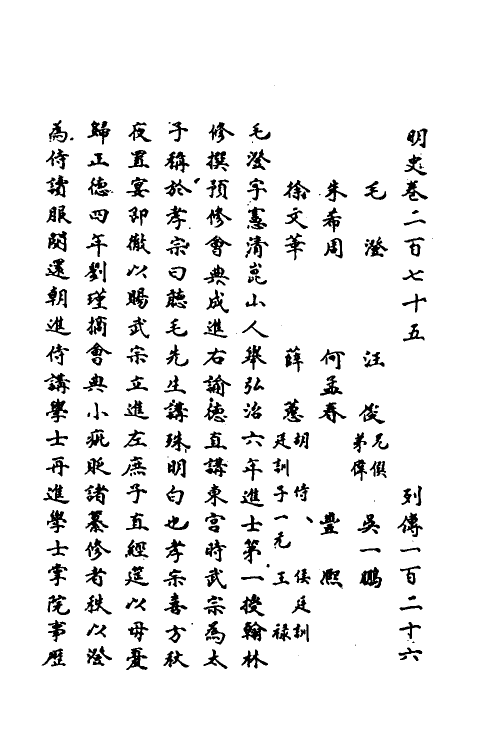 明史卷二百七十五　列傳一百二十六
毛澄　汪俊 兄俁 弟偉　吳一鵬
朱希周　何孟春　豐熙
徐文華　薛蕙 胡侍 王祿 侯廷訓 廷訓子一元
毛澄字憲清崑山人舉弘治六年進士第一授翰林
修撰預修會典成進右諭德直講東宮時武宗為太
子稱於孝宗曰聽毛先生講殊明白也孝宗喜方秋
夜置宴即徹以賜武宗立進左庶子直經筵以母憂
歸正德四年劉瑾摘會典小疵貶諸纂修者秩以澄
為侍讀服闋還朝進侍講學士再進學士掌院事歷